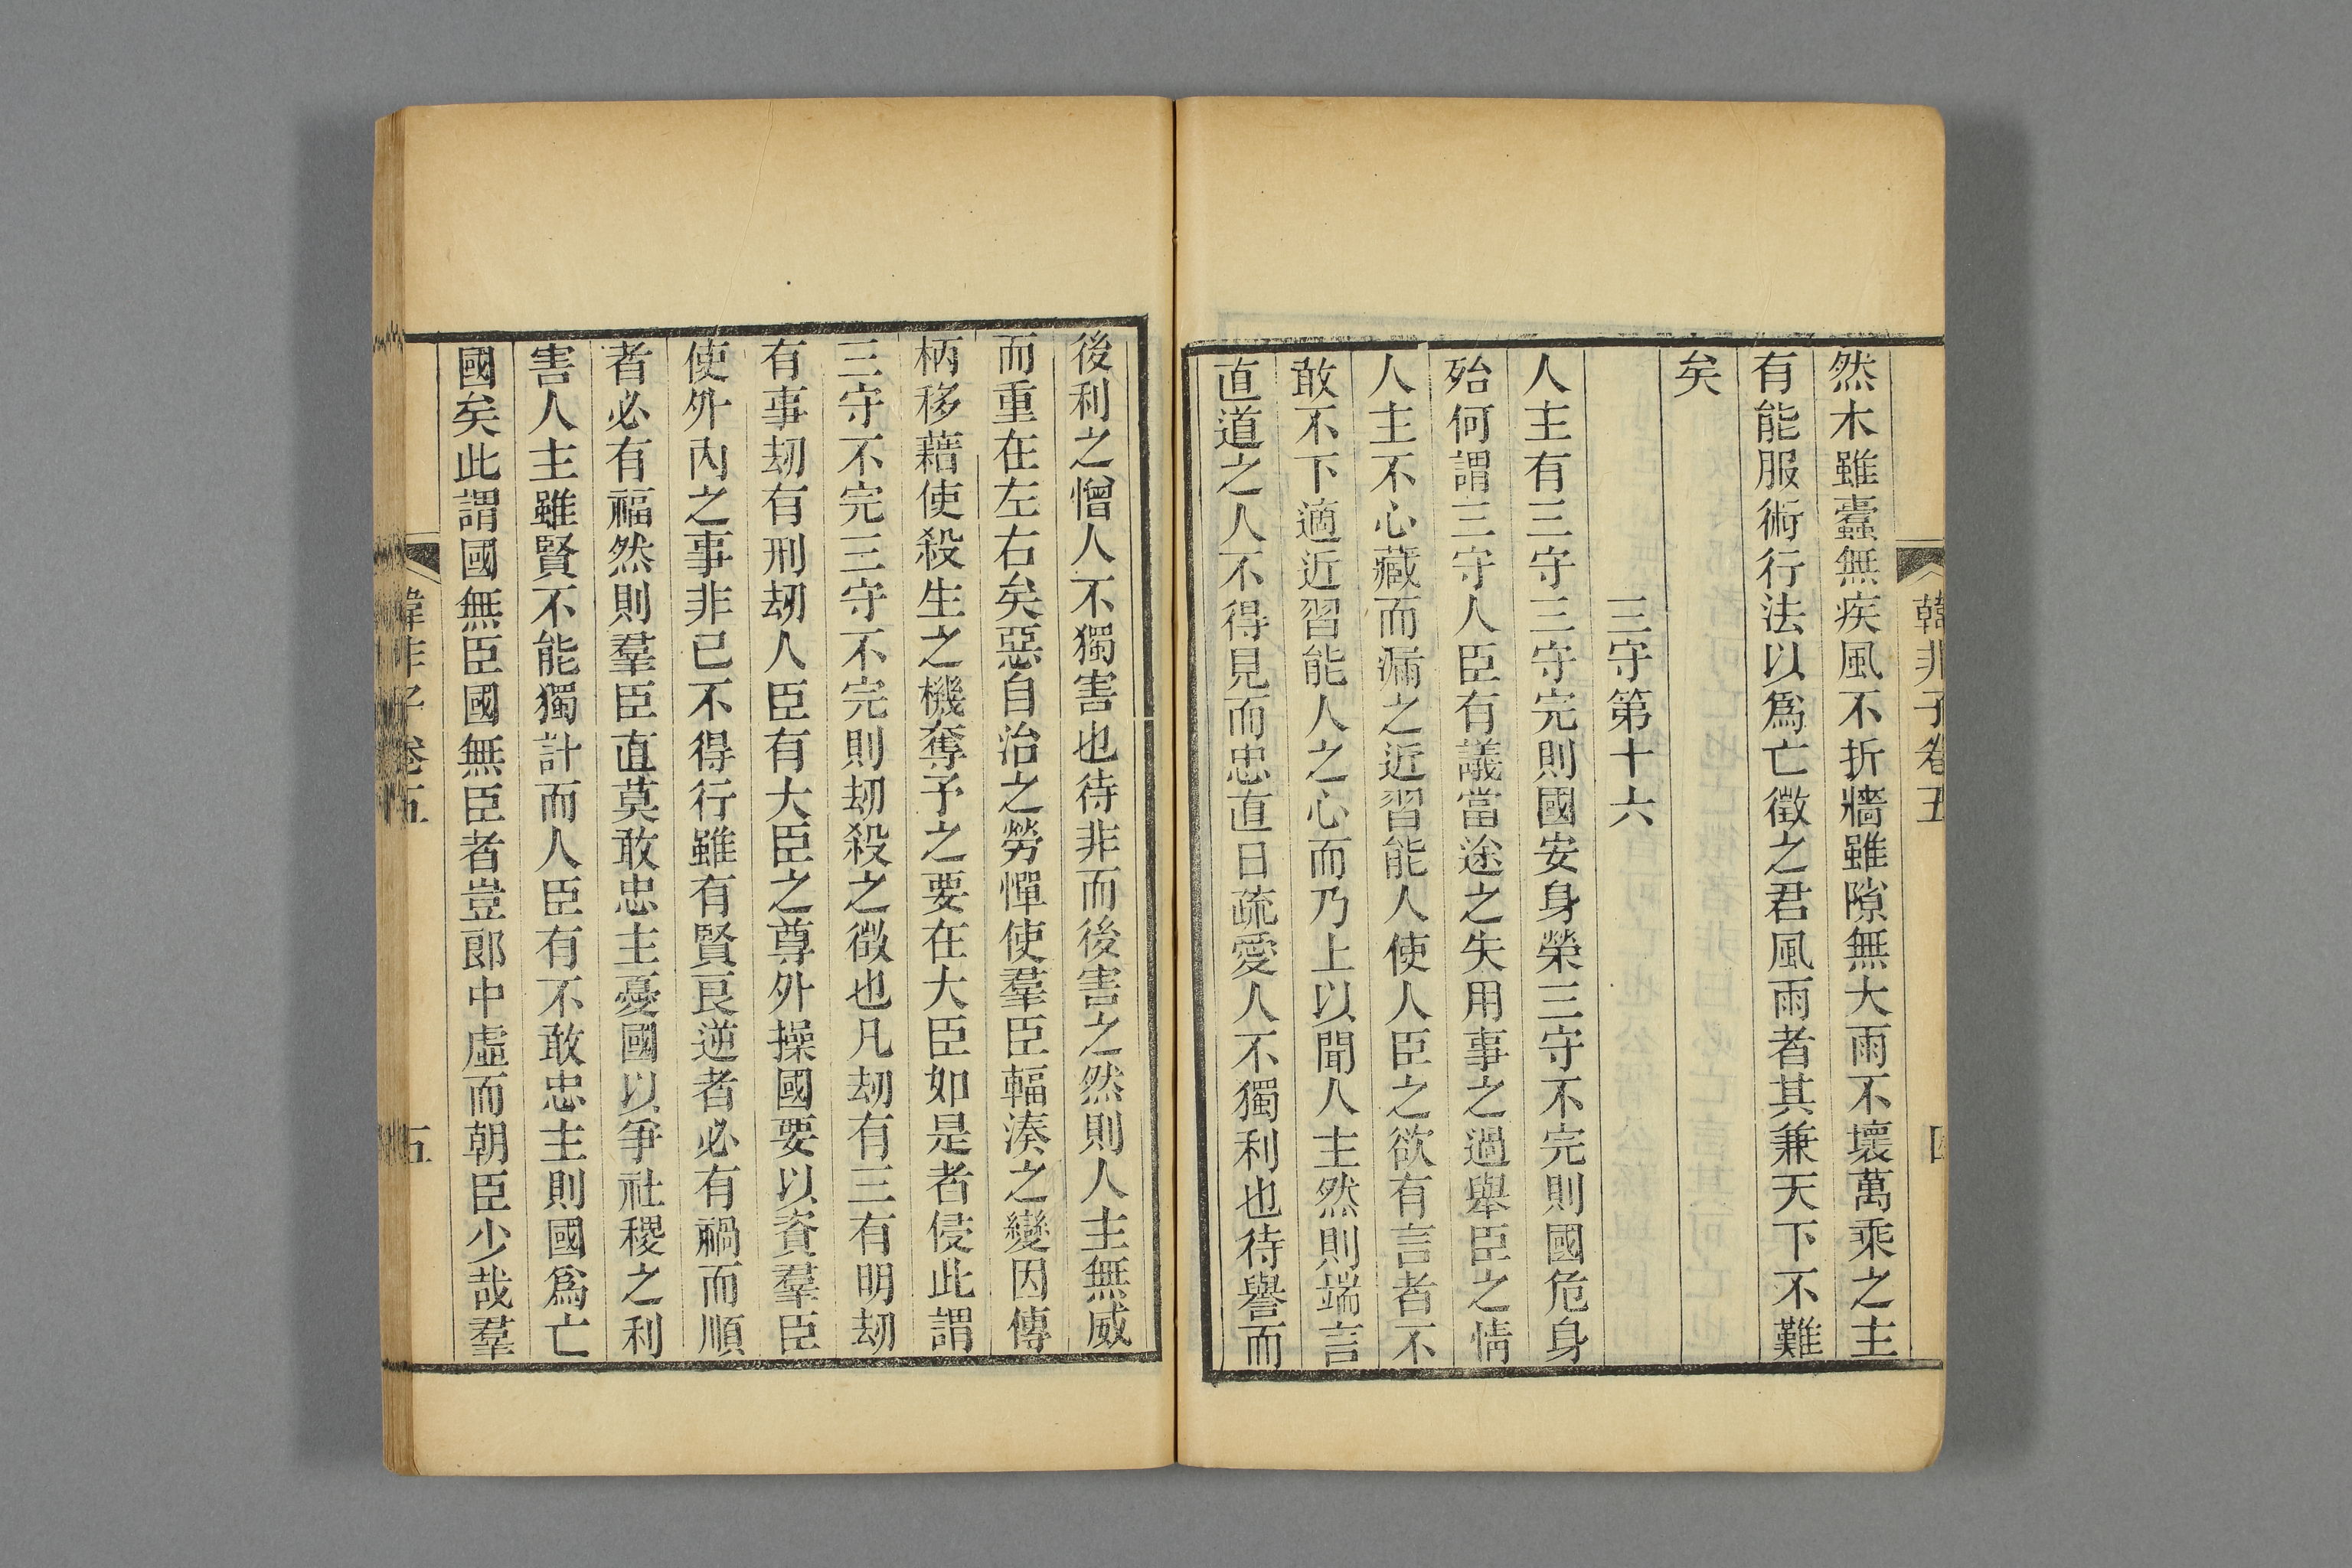 韓非子卷五
然木雖蠹無疾風不折牆雖隙無大雨不壞萬乘之主
有能服術行法以爲亡徵之君風雨者其兼天下不難
矣
三守第十六
人主有三守三守完則國安身榮三守不完則國危身
殆何謂三守人臣有議當途之失用事之過舉臣之情
人主不心藏而漏之近習能人使人臣之欲有言者不
敢不下適近習能人之心而乃上以聞人主然則端言
直道之人不得見而忠直日疏愛人不獨利也待譽而
後利之憎人不獨害也待非而後害之然則人主無威
而重在左右矣惡自治之勞憚使羣臣輻湊之變因傳
柄移藉使殺生之機奪予之要在大臣如是者侵此謂
三守不完三守不完則刼殺之徵也凡刼有三有明刼
有事刼有刑刼人臣有大臣之尊外操國要以資羣臣
使外內之事非已不得行雖有賢良逆者必有禍而順
者必有福然則羣臣直莫敢忠主憂國以爭社稷之利
害人主雖賢不能獨計而人臣有不敢忠主則國爲亡
國矣此謂國無臣國無臣者豈郎中虛而朝臣少哉羣
韓非子卷五
五